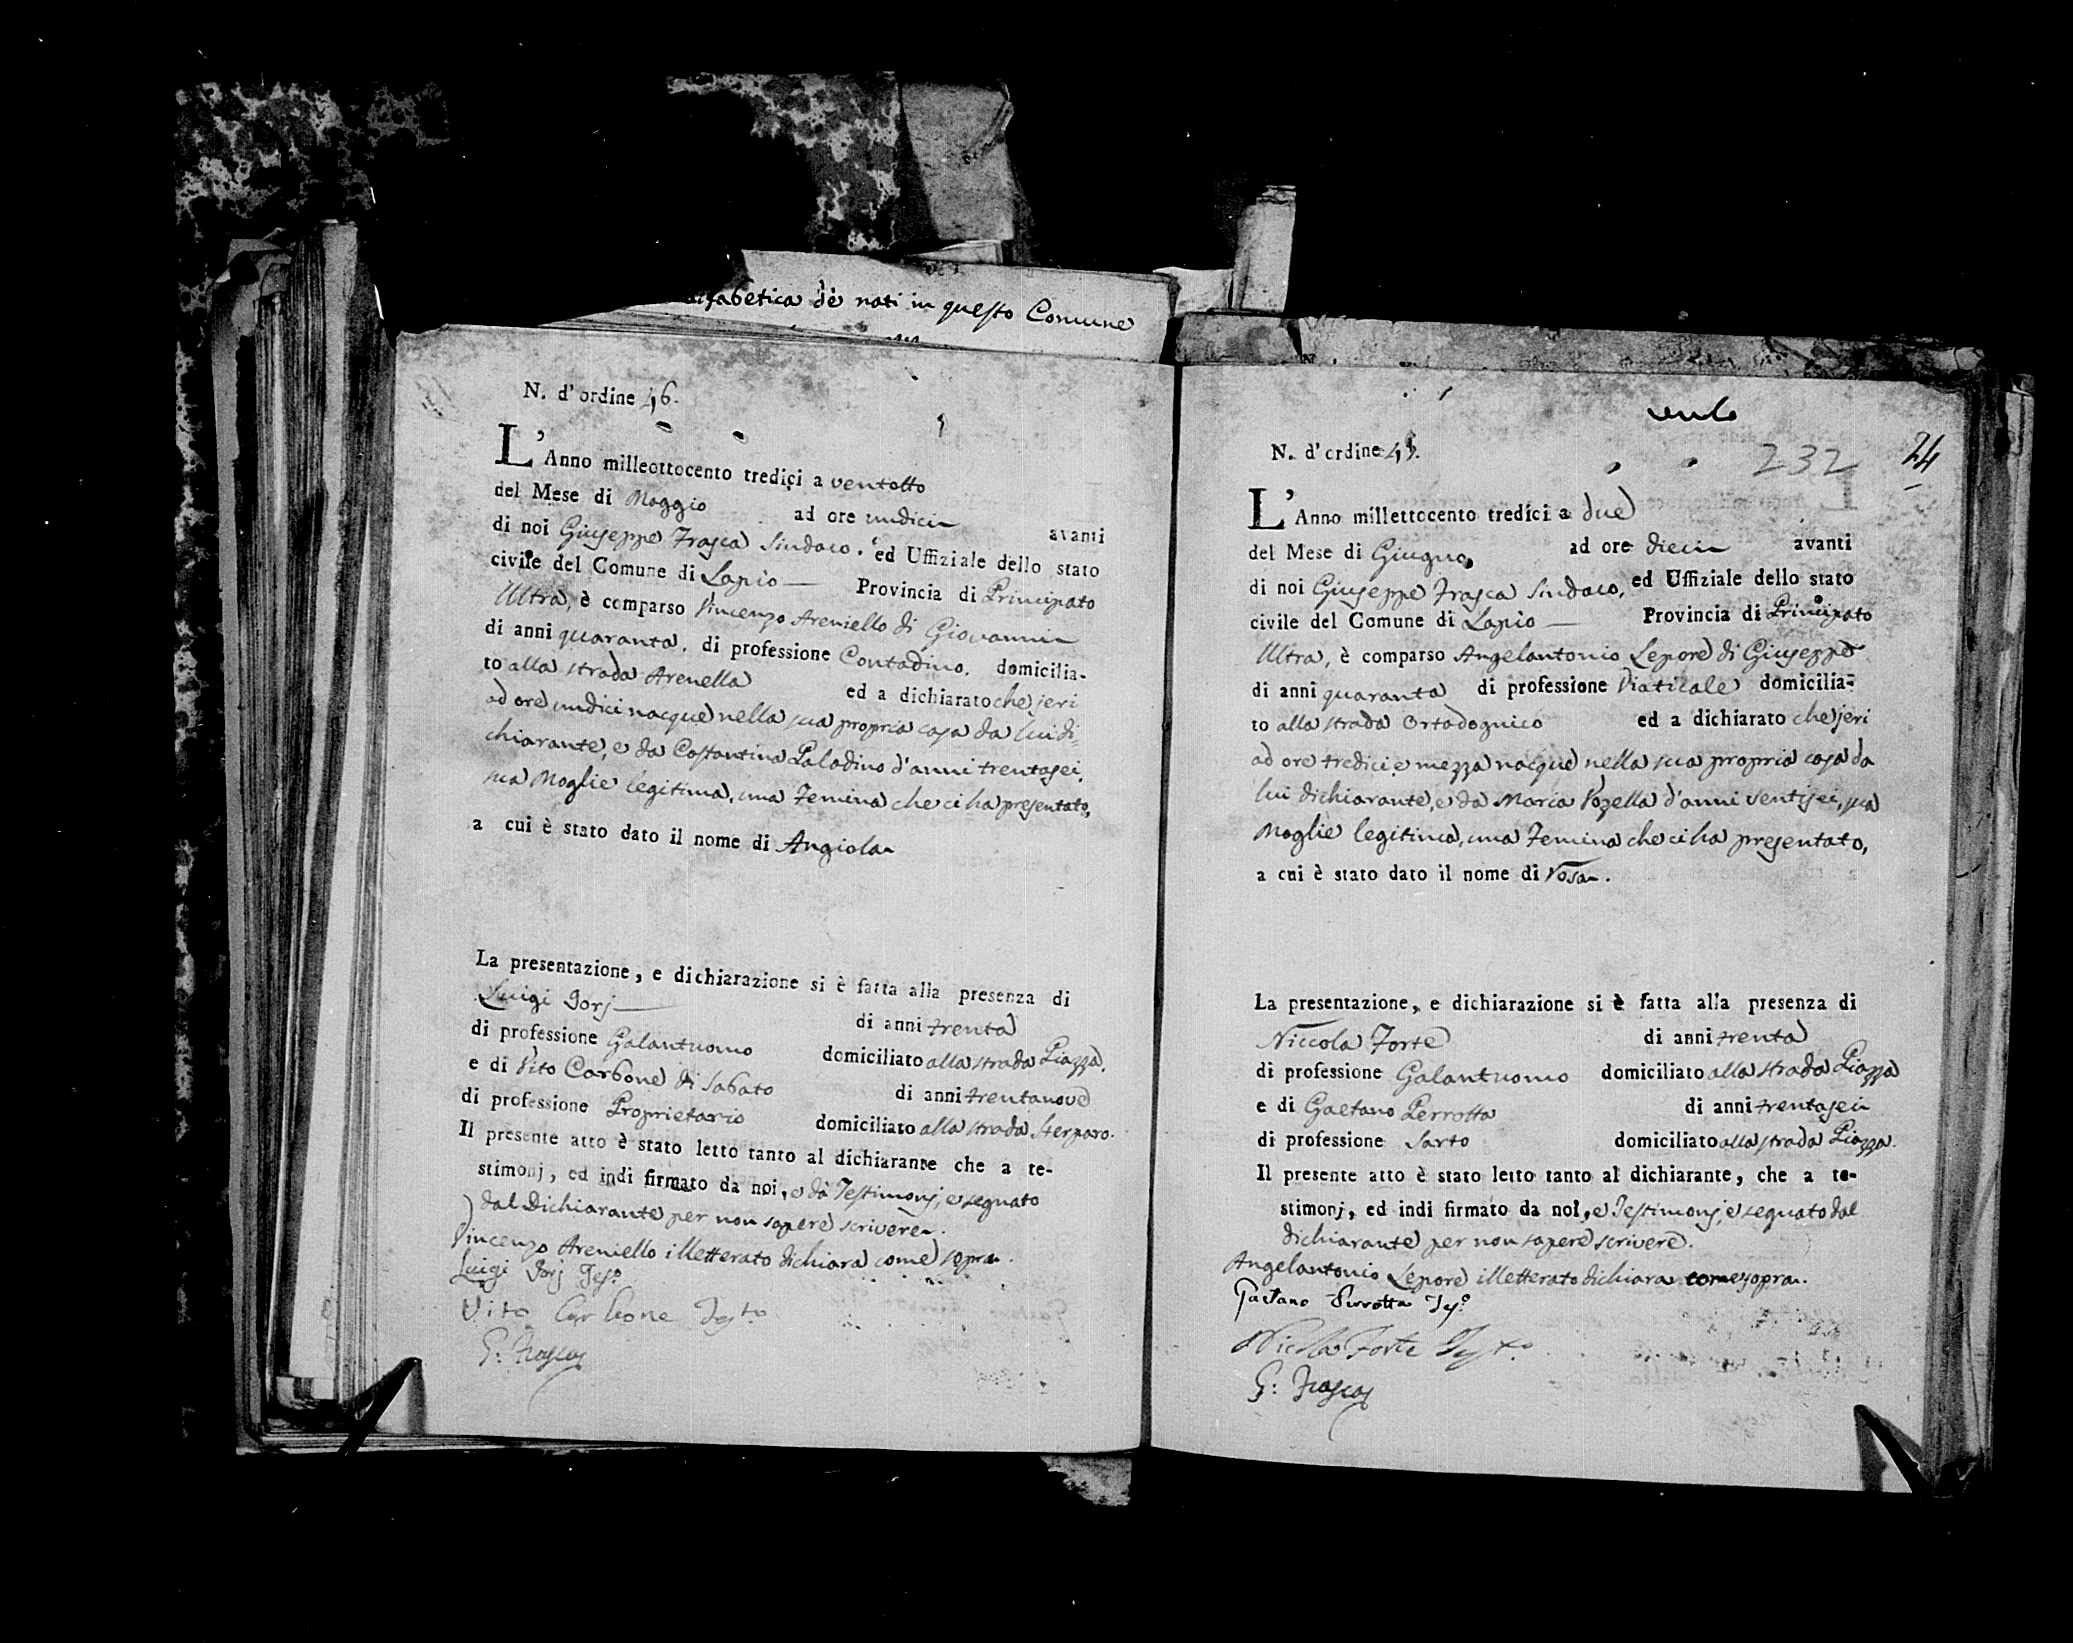 alfabetica dè nati in questo Comune
N. d'ordine 46.
L'Anno milleottocento tredici a ventotto
del Mese di Maggio ad ore undici avanti
di noi Giuseppe Frasca Sindaco, ed Uffiziale dello stato
civile del Comune di Lapio — Provincia di Principato
Ultra, è comparso Vincenzo Areniello di Giovanni
di anni quaranta, di professione Contadino, domicilia-
to alla strada Arenella ed a dichiarato che jeri
ad ore undici nacque nella sua propria casa da lui di=
chiarante, e da Costantina Paladino d'anni trentasei,
sua Moglie legitima, una Femina che ci ha presentato,
a cui è stato dato il nome di Angiola
La presentazione, e dichiarazione si è fatta alla presenza di
Luigi Iorj — di anni trenta
di professione Galantuomo domiciliato alla strada Piazza,
e di Vito Carbone di Sabato di anni trentanove
di professione Proprietario domiciliato alla strada Sterparo.
Il presente atto è stato letto tanto al dichiarante che a te-
stimonj, ed indi firmato da noi, e da Testimonj, e segnato
dal Dichiarante per non sapere scrivere.
Vincenzo Areniello illetterato dichiara come sopra.
Luigi Iorj Tes.o
Vito Carbone Test.o
G: Frasca
24
232
N. d'ordine 4
L'Anno millettocento tredici a due
del Mese di Giugno, ad ore dieci avanti
di noi Giuseppe Frasca Sindaco, ed Uffiziale dello stato
civile del Comune di Lapio — Provincia di Principato
Ultra, è comparso Angelantonio Lepore di Giuseppe
di anni quaranta di professione Viaticale domicilia-
to alla strada Ortadognico ed a dichiarato che jeri
ad ore tredici e mezza nacque nella sua propria casa da
lui dichiarante, e da Maria Vozella d'anni ventisei, sua
Moglie legitima, una Femina che ci ha presentato,
a cui è stato dato il nome di Rosa.
La presentazione, e dichiarazione si è fatta alla presenza di
Niccola Forte di anni trenta
di professione Galantuomo domiciliato alla strada Piazza
e di Gaetano Perrotta di anni trentasei
di professione Sarto domiciliato alla strada Piazza.
Il presente atto è stato letto tanto al dichiarante, che a te-
stimonj, ed indi firmato da noi, e Testimonj, e segnato dal
dichiarante per non sapere scrivere.
Angelantonio Lepore illetterato dichiara come sopra.
Gaetano Perrotta Tes.o
Nicola Forte Test.o
G: Frasca